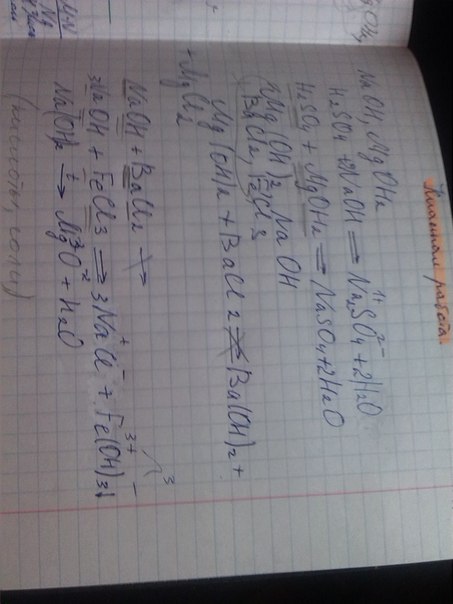 Классная работа
NaOH, MgOH2
H2SO4 + 2NaOH = Na2SO4 + 2H2O
1+ 2-
H2SO4 + MgOH2 = NaSO4 + 2H2O
Mg(OH)2 NaOH
BaCl2, FeCl3
Mg(OH)2 + BaCl2 ⇏ Ba(OH)2 +
+ MgCl2
NaOH + BaCl2 ↛
3NaOH + FeCl3 = 3NaCl + Fe(OH)3↓
+ - 3+ - 3
Na(OH)2 t→ MgO + H2O
(кислоты, соли)
MgOH2
Mg